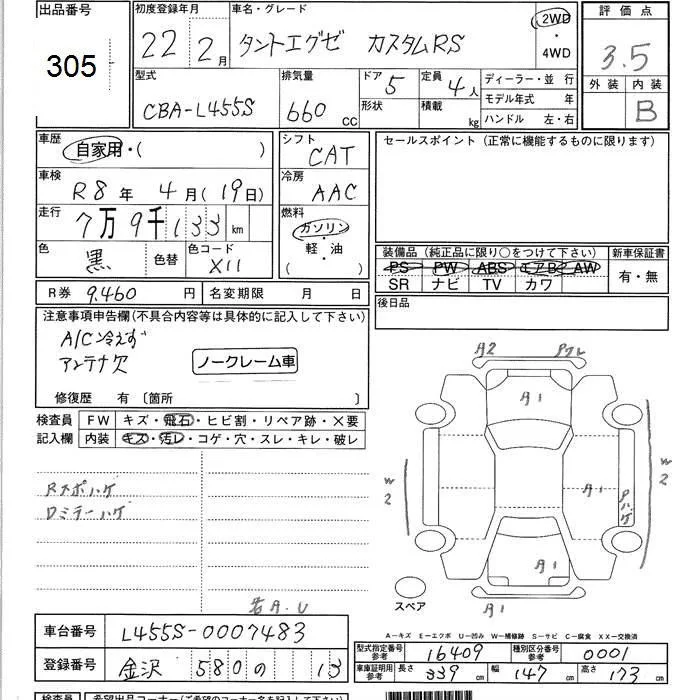 出品番号 初度登録年月 車名・グレード 2WD 評価点
305 22年 2月 タントエグゼ カスタムRS ・4WD 3.5
型式 排気量 ドア 5 定員 4人 ディーラー・並 行 外装 内装
CBA-L455S 660cc 形状 積載 kg モデル年式 年 B
ハンドル 左・右
車歴 自家用・( ) シフト CAT セールスポイント (正常に機能するものに限ります)
車検 R8年 4月(19日) 冷房 AAC
走行 7万9千133km 燃料 ガソリン・軽・油 ( )
色 黒 色替 色コード X11
装備品 (純正品に限り○をつけて下さい) 新車保証書
PS PW ABS エアB AW 有・無
SR ナビ TV カワ
R券 9,460円 名変期限 月 日 後日品
注意事項申告欄(不具合内容等は具体的に記入して下さい)
A/C冷えず
アンテナ欠 ノークレーム車
修復歴 有 〔箇所 〕
検査員 FW キズ・飛石・ヒビ割・リペア跡・×要
記入欄 内装 キズ・汚レ・コゲ・穴・スレ・キレ・破レ
Rスポハゲ
Dミラーハゲ
A2
A1
W2
A1
W2
A1
A1
スペア
若A.U
A-キズ E-エクボ U-凹み W-補修跡 S-サビ C-腐食 XX-交換済
車台番号 L455S-0007483
型式指定番号 参考 16409 種別区分番号 参考 0001
登録番号 金沢 580 の 13
車庫証明用 参考 長さ 339 cm 幅 147 cm 高さ 173
検査員 希望出品コーナー(ご希望のコーナー名を記